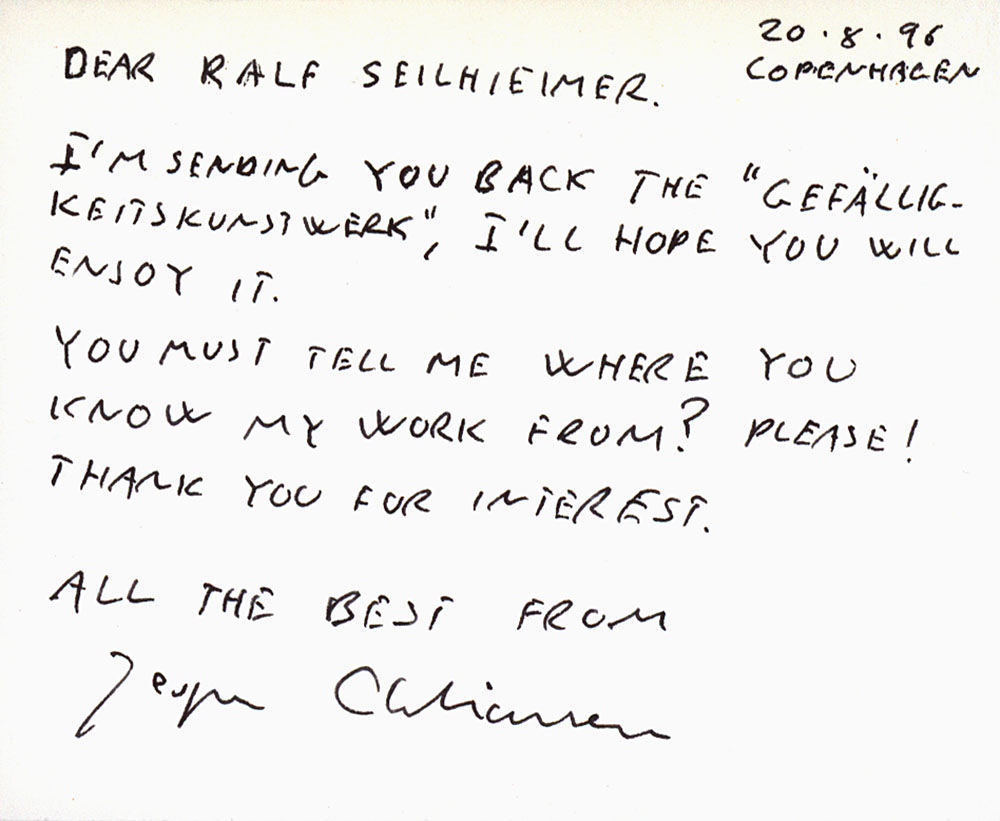 20.8.96
COPENHAGEN
DEAR RALF SEILHIEIMER.
I'M SENDING YOU BACK THE "GEFÄLLIG-
KEITSKUNSTWERK", I'LL HOPE YOU WILL
ENJOY IT.
YOU MUST TELL ME WHERE YOU
KNOW MY WORK FROM? PLEASE!
THANK YOU FOR INTEREST.
ALL THE BEST FROM
Jesper Christiansen